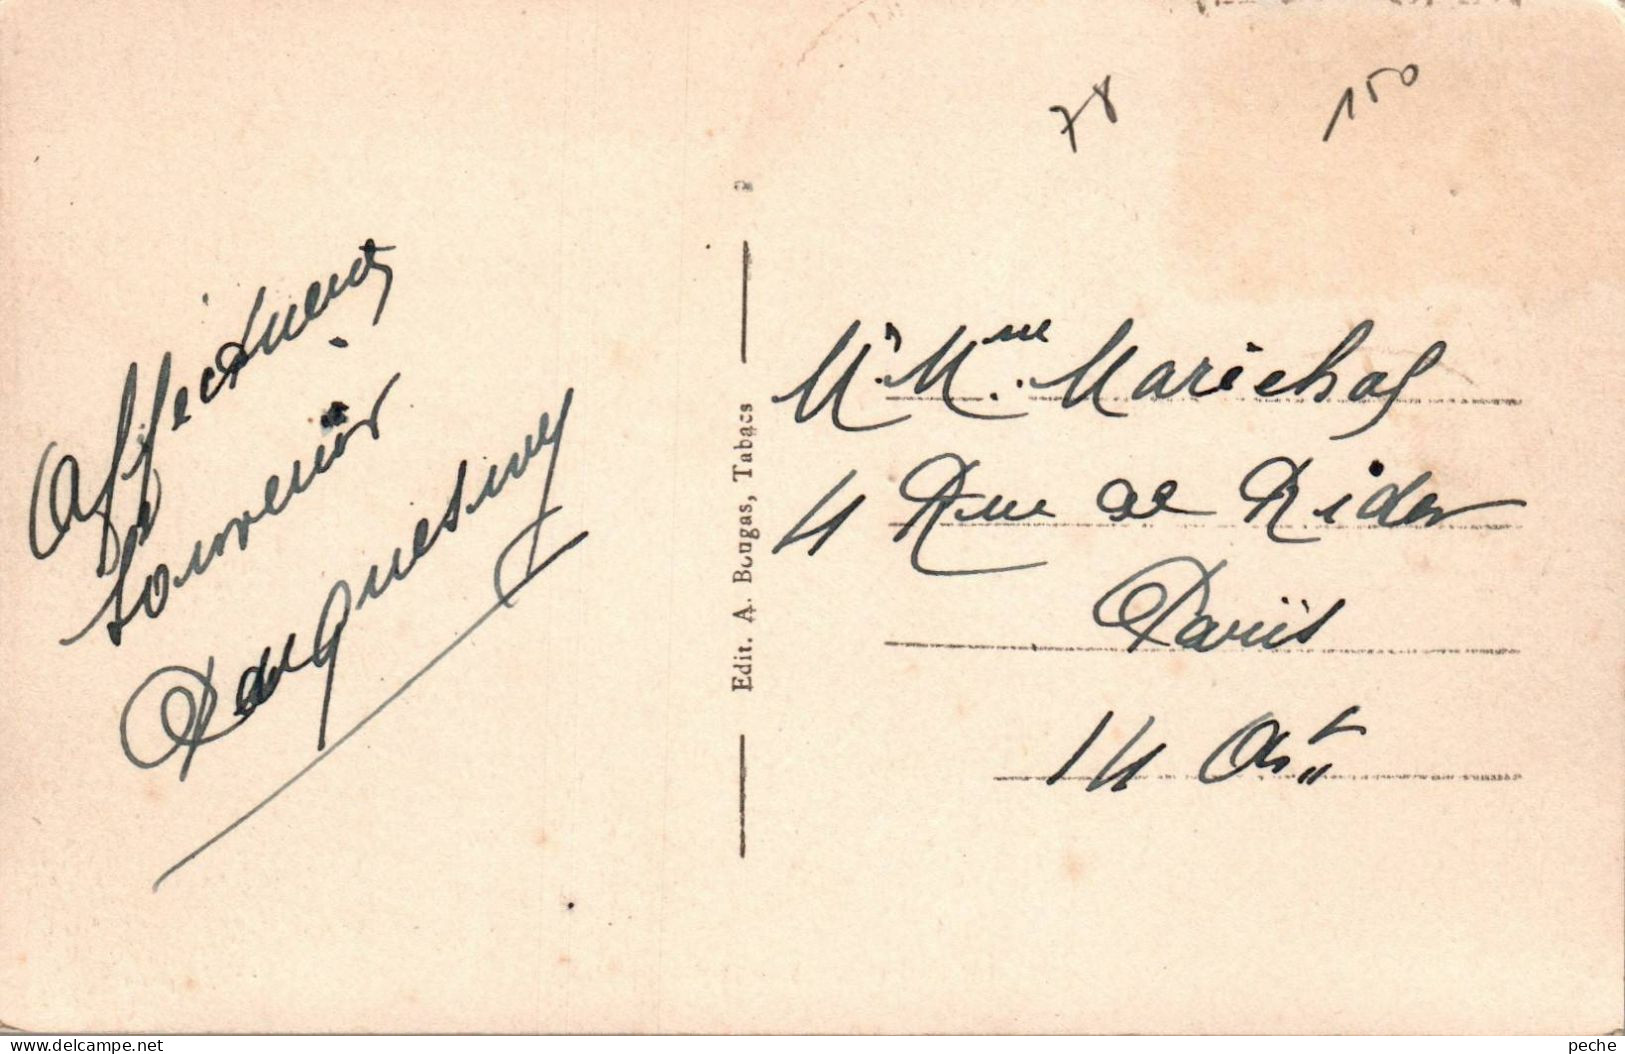 78
150
Affectueux
souvenir
Duquesnoy
Edit. A. Bougas, Tabacs
Mr Mme Marichal
4 Rue de Rider
Paris
14 Art
www.delcampe.net
peche